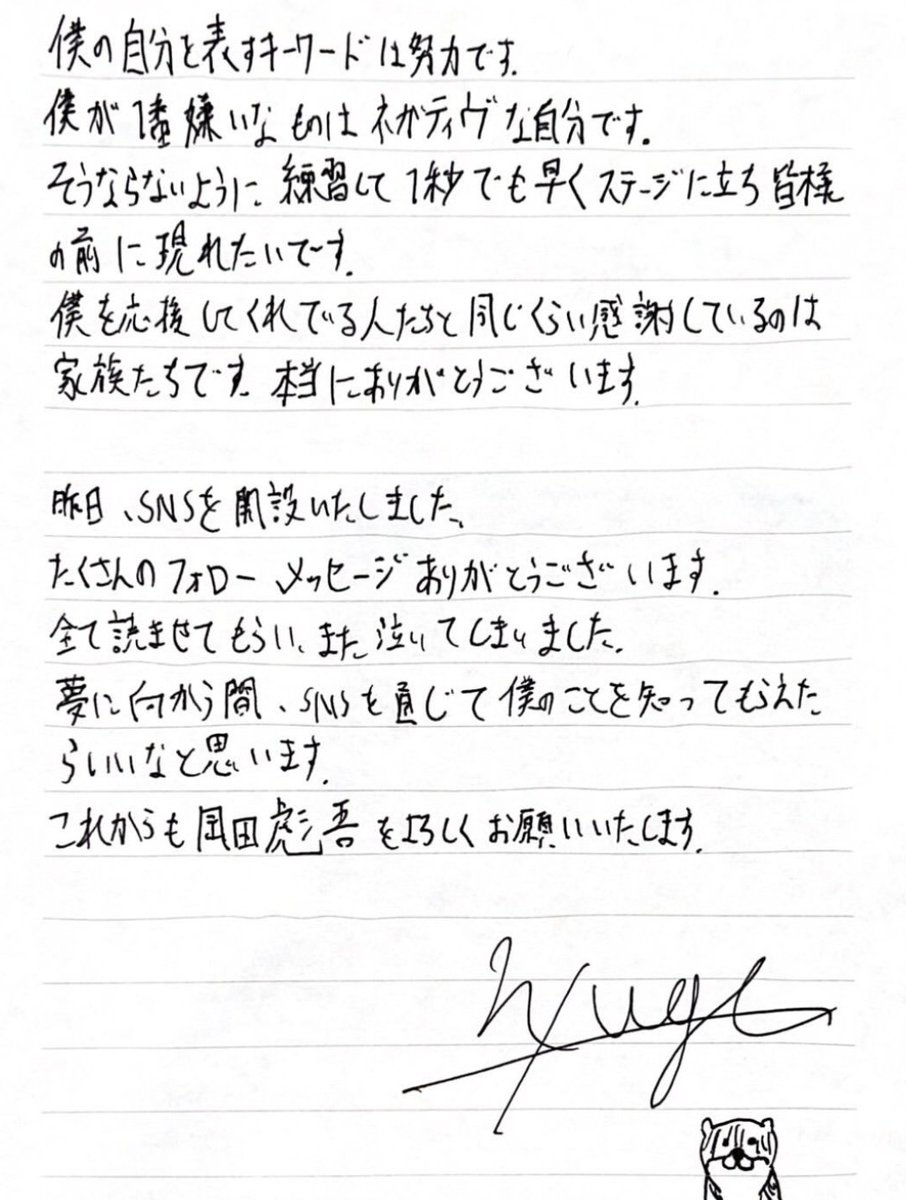 僕の自分を表すキーワードは努力です.
僕が1番嫌いなものはネガティヴな自分です.
そうならないように、練習して1秒でも早くステージに立ち皆様
の前に現れたいです.
僕を応援してくれている人たちと同じくらい感謝しているのは
家族たちです.本当にありがとうございます.
昨日、SNSを開設いたしました、
たくさんのフォロー、メッセージありがとうございます.
全て読ませてもらい、また泣いてしまいました.
夢に向かう間、SNSを通じて僕のことを知ってもらえた
らいいなと思います.
これからも岡田彪吾をよろしくお願いいたします.